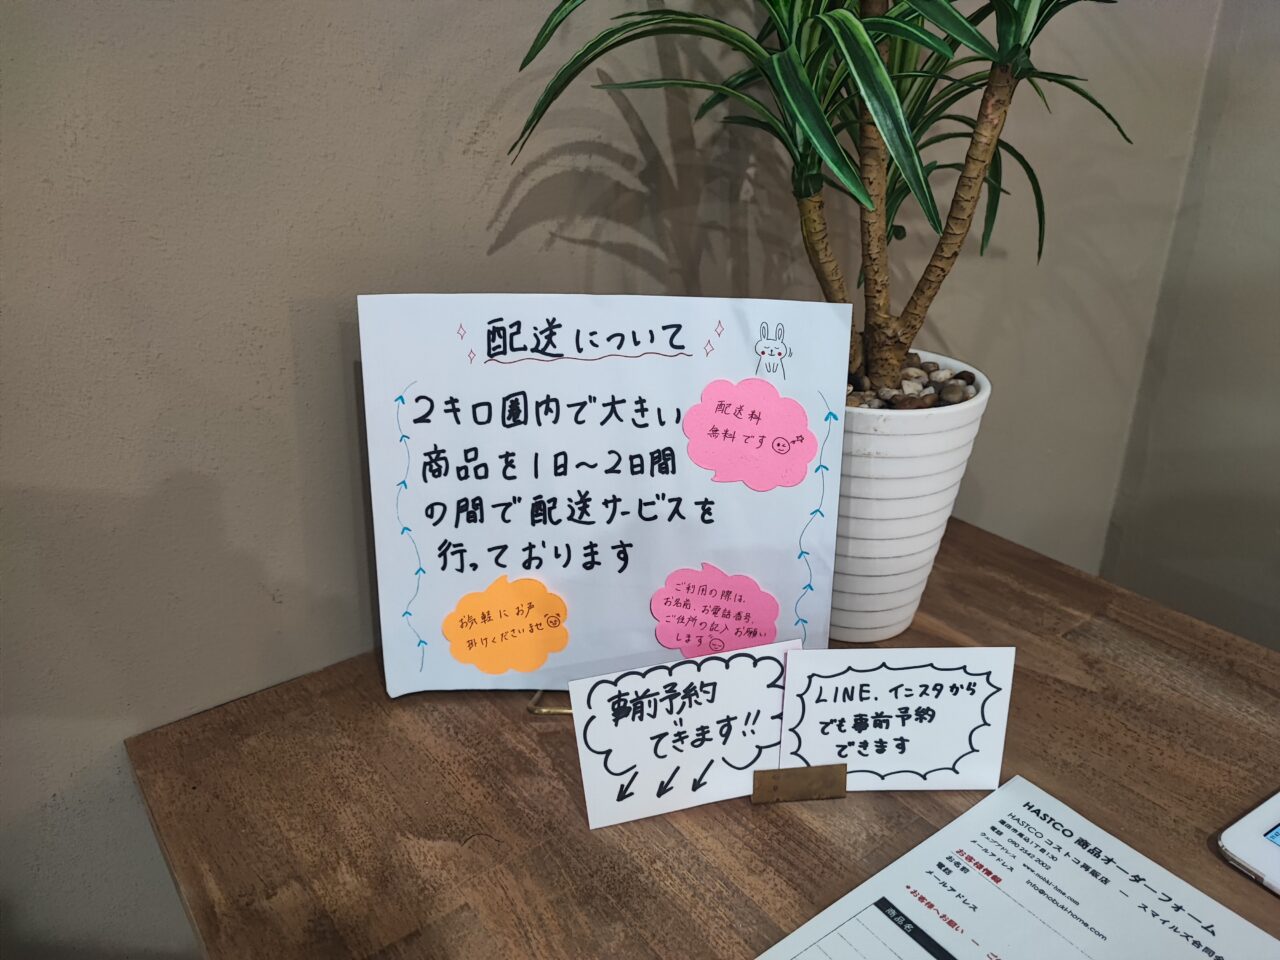 配送について
2キロ圏内で大きい
商品を1日〜2日間
の間で配送サービスを
行っております
配送料
無料です
お気軽にお声
掛けくださいませ
ご利用の際は、
お名前、お電話番号、
ご住所の記入お願い
します
事前予約
できます!!
LINE.インスタから
でも事前予約
できます
HASTCO 商品オーダーフォーム
HASTCO コストコ再販店 ー スマイルズ合同会
電話 090 2542 2002
ウェブアドレス www.nobuki-home.com
メールアドレス info@nobuki-home.com
お客様情報
お名前
電話
メールアドレス
*お客様へお願い ー
商品名